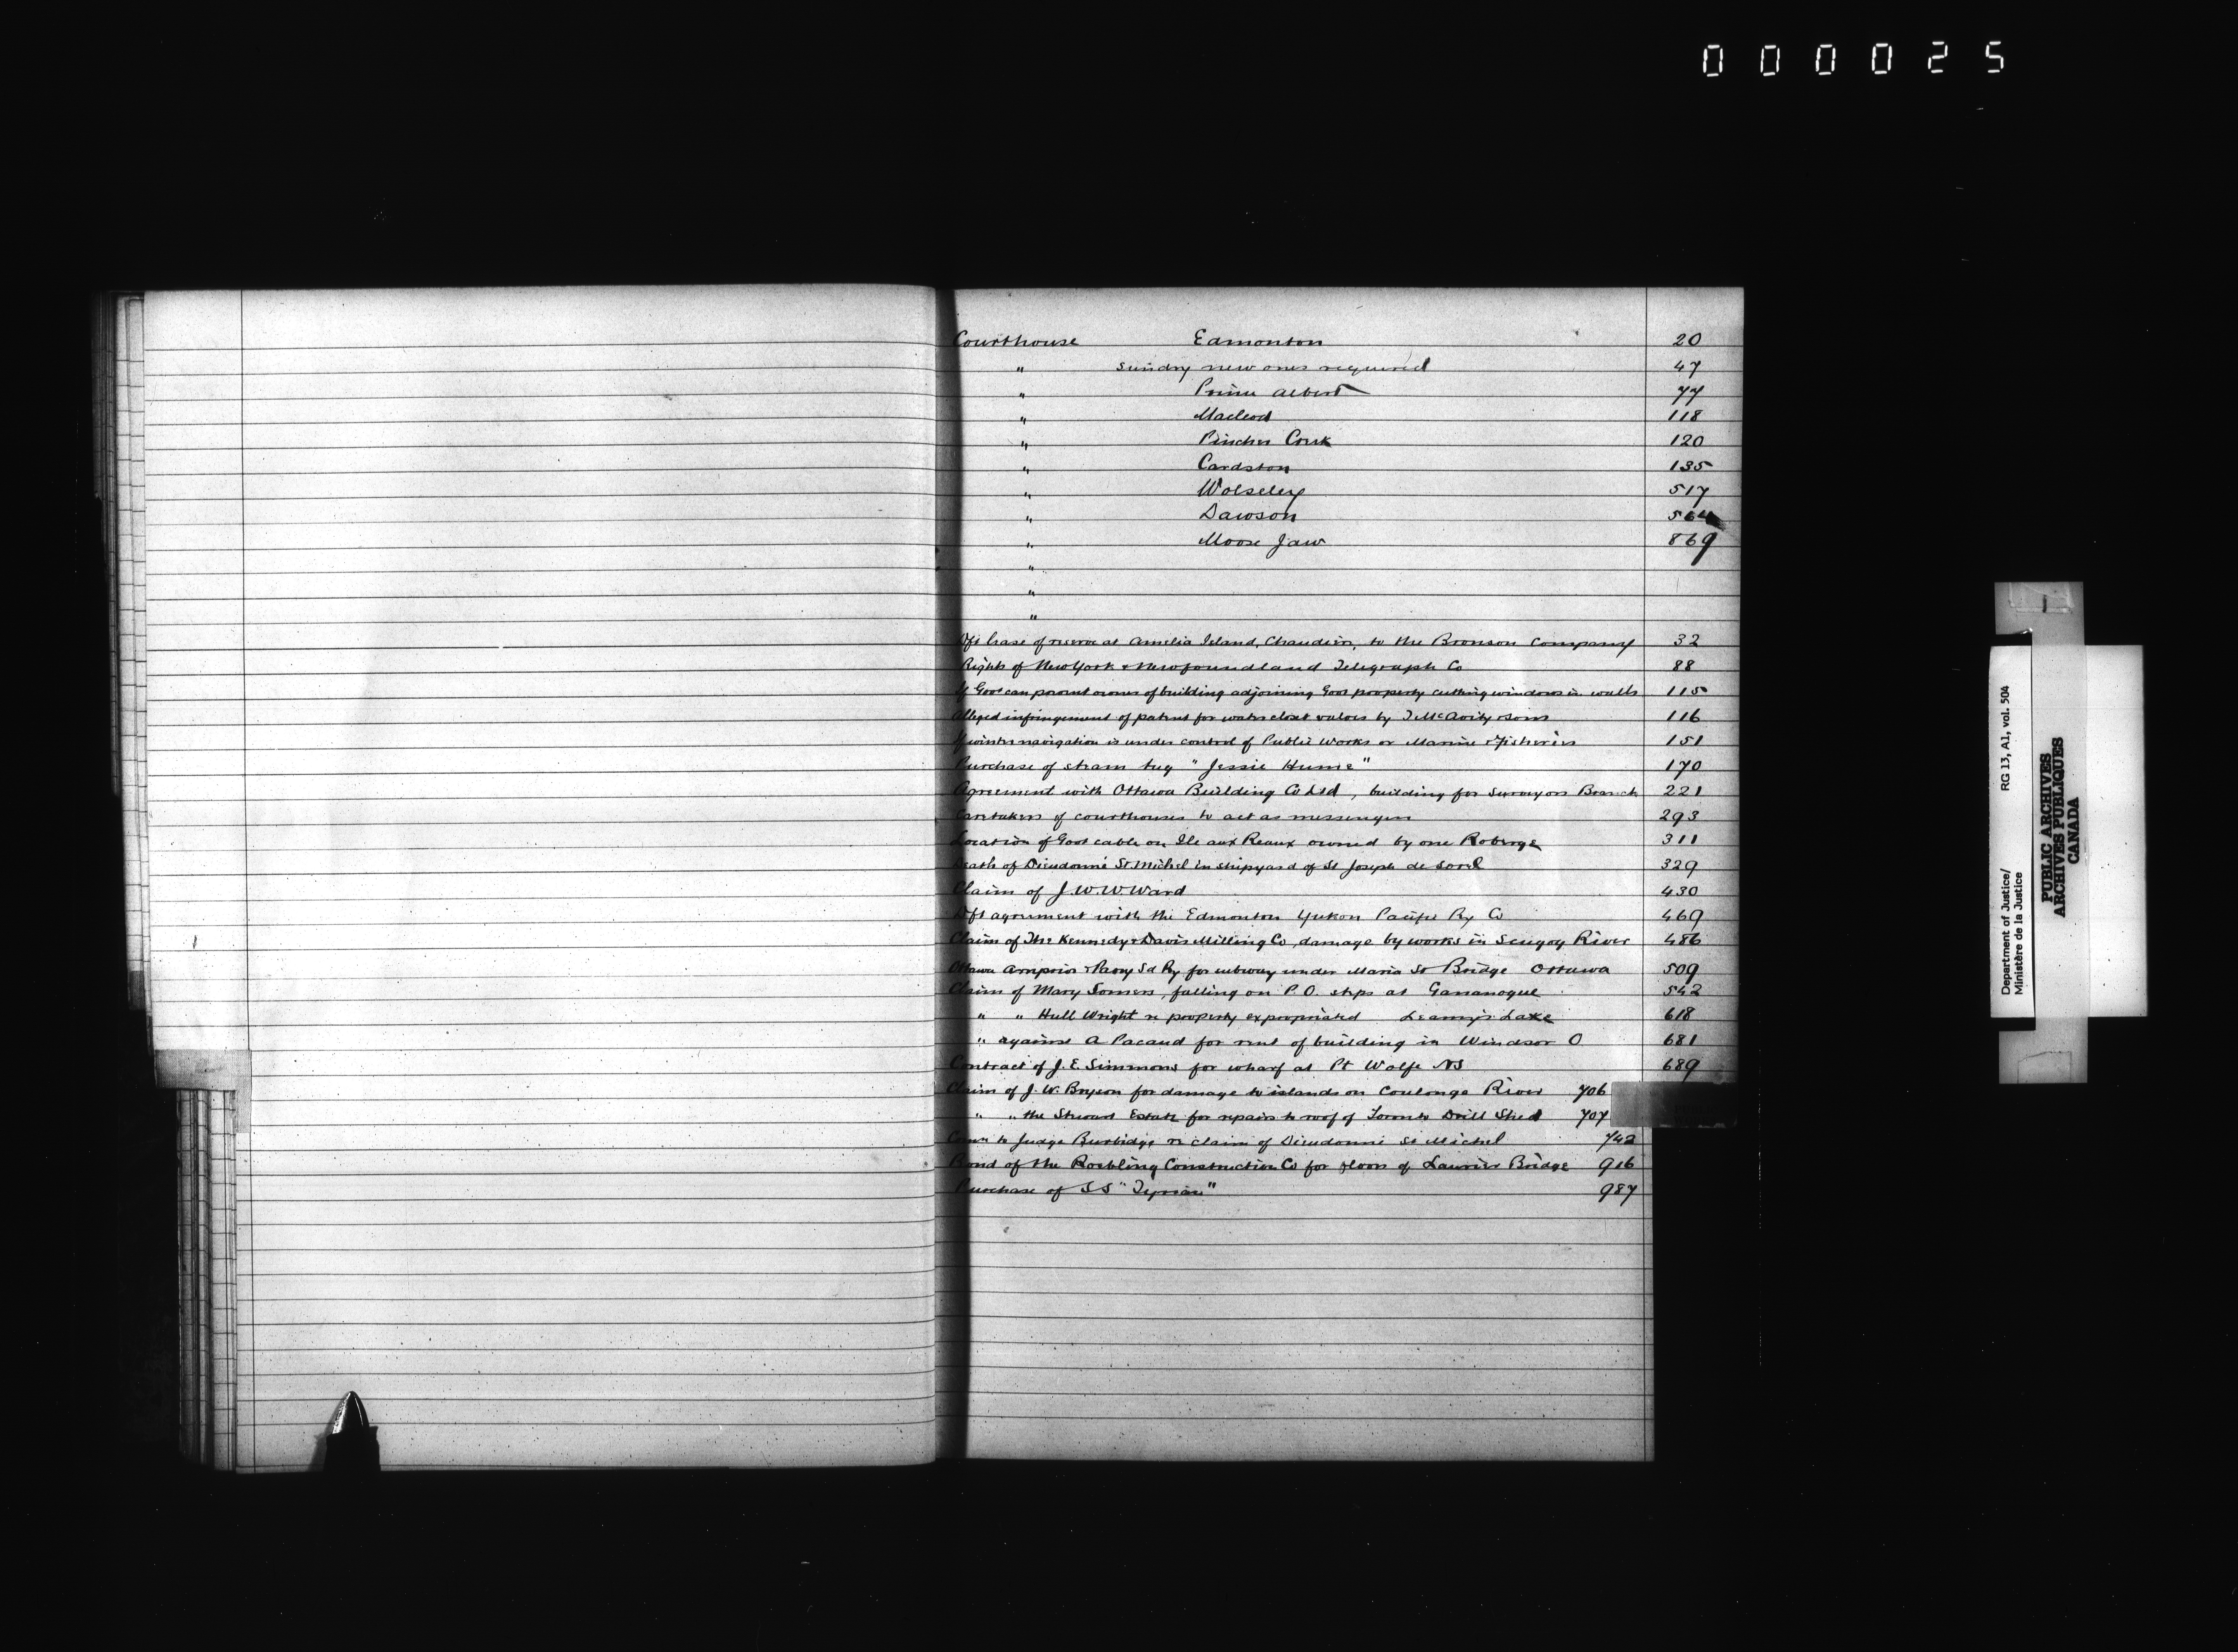 000025
Courthouse Edmonton 20
" sundry new ones required 47
" Prince Albert 77
" Macleod 118
" Pincher Creek 120
" Cardston 135
" Wolseley 517
" Dawson 564
" Moose Jaw 869
"
"
"
Dft lease of reserve at Amelia Island, Chaudiere, to the Bronson Company 32
Rights of New York & Newfoundland Telegraph Co 88
If Govt can prevent owner of building adjoining Govt property cutting windows in walls 115
Alleged infringement of patent for water closet valves by T. McAvity & Sons 116
If winter navigation is under control of Public Works or Marine & Fisheries 151
Purchase of steam tug "Jessie Hume" 170
Agreement with Ottawa Building Co Ltd, building for Surveyors Branch 221
Caretakers of courthouses to act as messengers 293
Location of Govt cable on Ile aux Reaux owned by one Roberge 311
Death of Dieudonné St. Michel in shipyard of St Joseph de Sorel 329
Claim of J.W.W. Ward 430
Dft agreement with the Edmonton Yukon Pacific Ry Co 469
Claim of The Kennedy & Davis Milling Co, damage by works in Scugog River 486
Ottawa Arnprior & Parry Sd Ry for subway under Maria St Bridge Ottawa 509
Claim of Mary Somers, falling on P.O. steps at Gananoque 542
" " Hull Wright re property expropriated Leamy's Lake 618
" against A Pacaud for rent of building in Windsor O 681
Contract of J. E. Simmons for wharf at Pt Wolfe NS 689
Claim of J. W. Bryson for damage to islands on Coulonge River 706
" " the Stewart Estate for repairs to roof of Toronto Drill Shed 707
to Judge Burbidge re claim of Dieudonné St Michel 742
Bond of the Roebling Construction Co for floors of Laurier Bridge 916
Purchase of SS "Tyrian" 987
Department of Justice/ RG 13, A1, vol. 504
Ministère de la Justice
PUBLIC ARCHIVES
ARCHIVES PUBLIQUES
CANADA